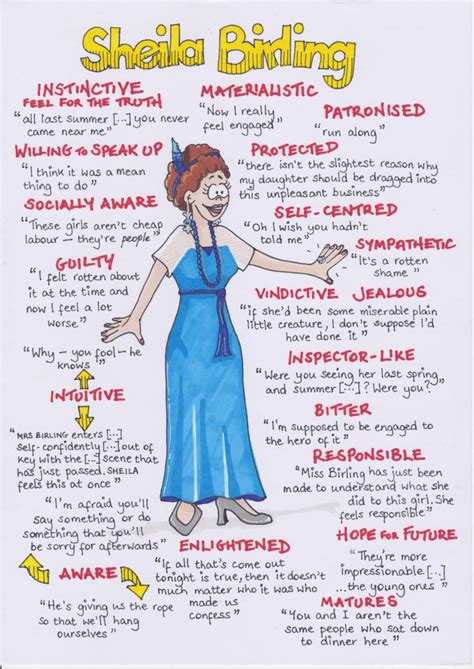 Sheila Birling
INSTINCTIVE
FEEL FOR THE TRUTH
"all last summer [...] you never
came near me"
WILLING TO SPEAK UP
"I think it was a mean
thing to do"
SOCIALLY AWARE
"These girls aren't cheap
labour – they're people"
GUILTY
"I felt rotten about
it at the time and
now I feel a lot
worse"
"Why – you fool – he
knows"
INTUITIVE
"MRS BIRLING enters [...]
self-confidently [...] out of
key with the [...] scene that
has just passed. SHEILA
feels this at once"
"I'm afraid you'll
say something or do
something that you'll
be sorry for afterwards"
AWARE
"He's giving us the rope
so that we'll hang
ourselves"
MATERIALISTIC
"Now I really
feel engaged"
PATRONISED
"run along"
PROTECTED
"there isn't the slightest reason why
my daughter should be dragged into
this unpleasant business"
SELF-CENTRED
"Oh I wish you hadn't
told me"
SYMPATHETIC
"It's a rotten
shame"
VINDICTIVE JEALOUS
"if she'd been some miserable plain
little creature, I don't suppose I'd
have done it"
INSPECTOR-LIKE
"Were you seeing her last spring
and summer [...]? Were you?"
BITTER
"I'm supposed to be engaged to
the hero of it"
RESPONSIBLE
"Miss Birling has just been
made to understand what she
did to this girl. She feels
responsible"
HOPE FOR FUTURE
"They're more
impressionable [...]
the young ones"
ENLIGHTENED
"If all that's come out
tonight is true, then it doesn't
much matter who it was who
made us
confess"
MATURES
"You and I aren't the
same people who sat down
to dinner here"